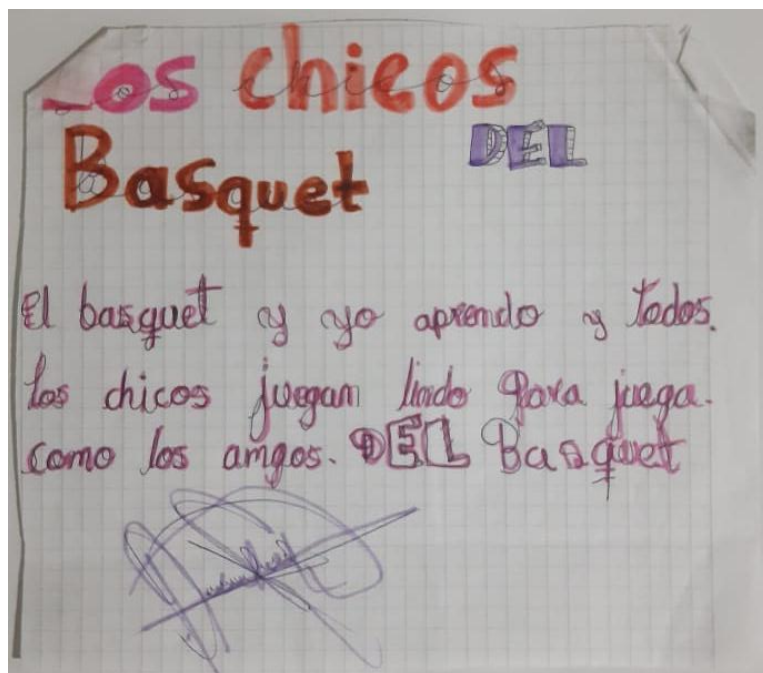 Los chicos
DEL
Basquet
El basquet y yo aprendo y todos.
los chicos juegan lindo para juega.
como los amgos. DEL Basquet